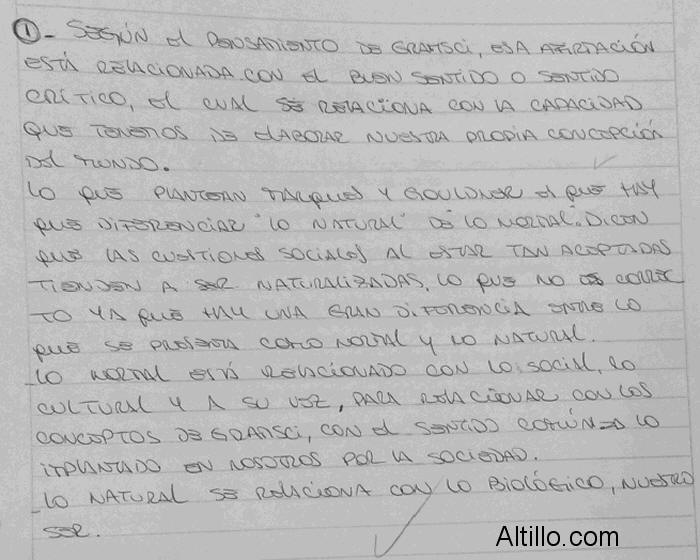 ①- SEGÚN El PENSAMIENTO DE GRAMSCI, ESA AFIRMACIÓN
ESTÁ RELACIONADA CON El BUEN SENTIDO O SENTIDO
CRÍTICO, El CUAL SE RELACIONA CON LA CAPACIDAD
QUE TENEMOS DE ElABORAR NUESTRA PROPIA CONCEPCIÓN
DEl MUNDO.
LO QUE PLANTEAN MARQUES Y GOULDNER ES QUE HAY
QUE DIFERENCIAR "LO NATURAL" DE LO NORMAL. DICEN
QUE LAS CUESTIONES SOCIALES AL ESTAR TAN ACEPTADAS
TIENDEN A SER NATURALIZADAS, LO QUE NO ES CORREC
TO YA QUE HAY UNA GRAN DIFERENCIA ENTRE LO
QUE SE PRESENTA COMO NORMAL Y LO NATURAL.
_LO NORMAL ESTÁ RELACIONADO CON LO SOCIAL, LO
CULTURAL Y A SU VEZ, PARA RELACIONAR CON LOS
CONCEPTOS DE GRAMSCI, CON El SENTIDO COMÚN → LO
IMPLANTADO EN NOSOTROS POR LA SOCIEDAD.
_LO NATURAL SE RELACIONA CON LO BIOLÓGICO, NUESTRO
SER.
Altillo.com